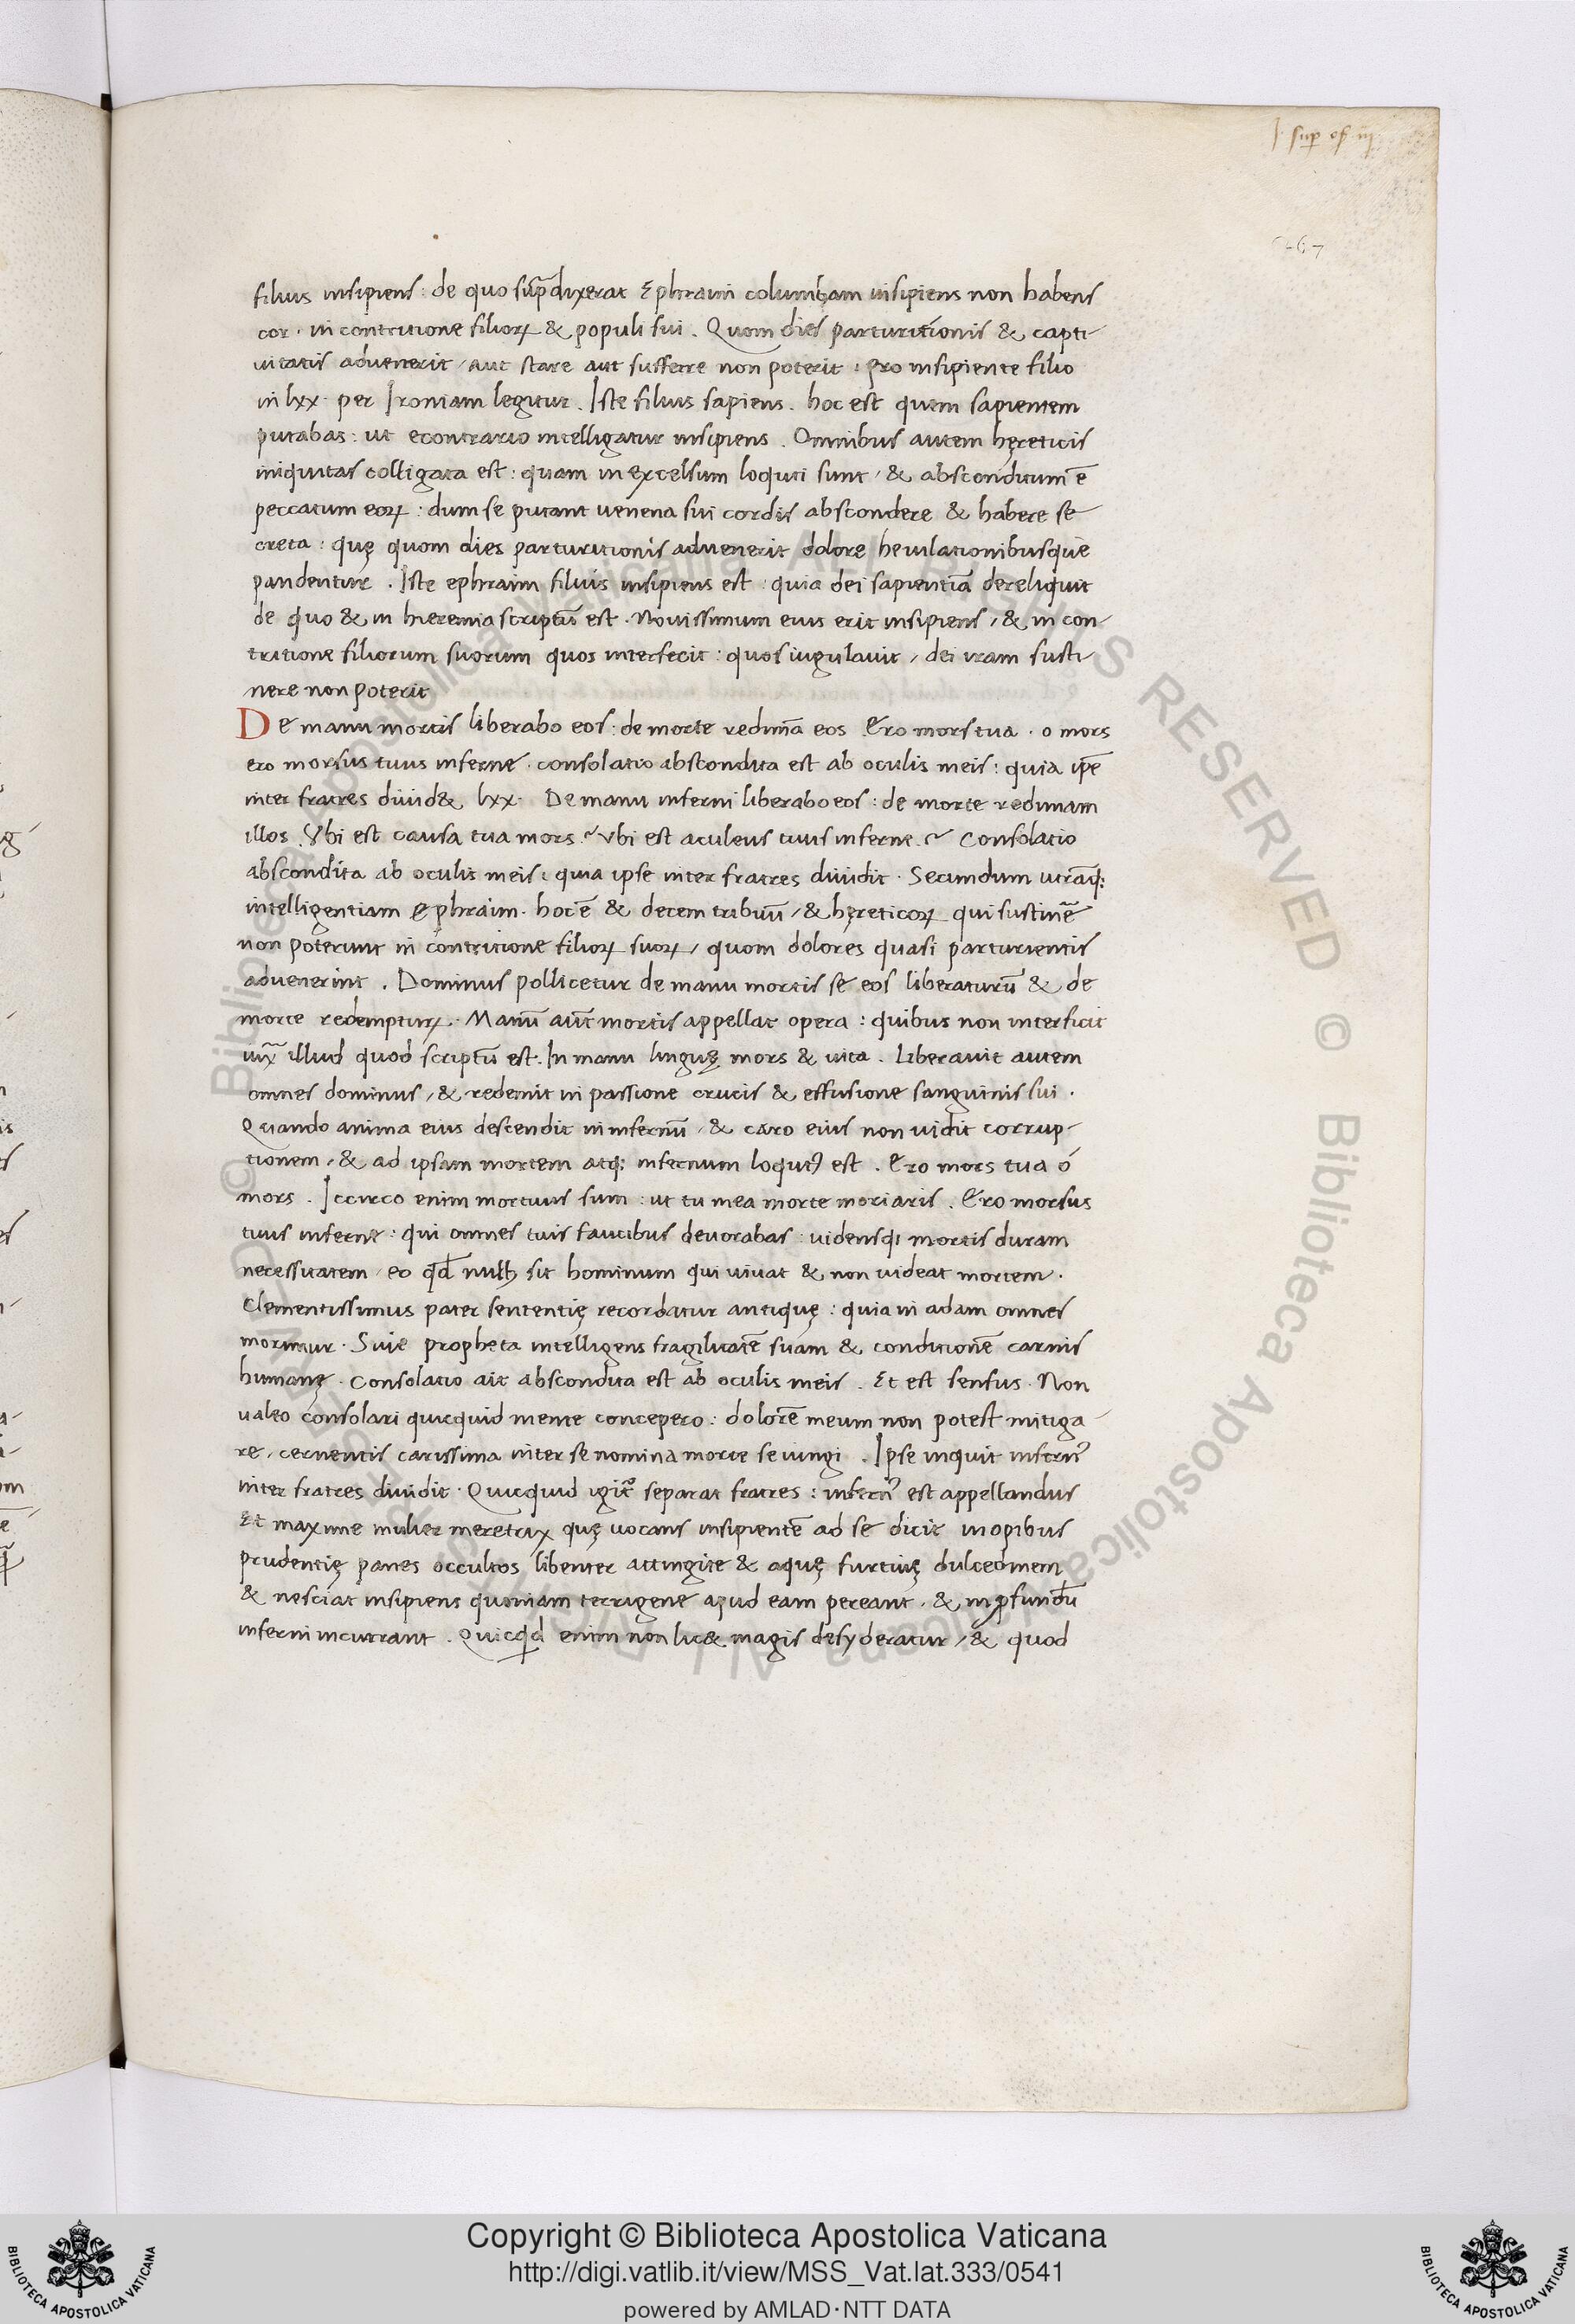 J. sup of iii
267
filius insipiens: de quo sup̄dixerat Ephraim columbam insipiens non habens
cor. in contritione filioꝝ & populi sui. Quom dies parturitionis & capti-
uitatis aduenerit, aut stare aut sufferre non poterit: pro insipiente filio
in lxx. per Ironiam legitur. Iste filius sapiens. hoc est quem sapientem
putabas: ut econtrario intelligatur insipiens. Omnibus autem hęreticis
iniquitas colligata est: quam in excelsum loquti sunt, & absconditum ē
peccatum eoꝝ: dum se putant uenena sui cordis abscondere & habere se
creta: quę quom dies parturitionis aduenerit dolore heiulationibusque
pandentur. Iste ephraim filius insipiens est: quia dei sapientiā dereliquit
de quo & in hieremia scriptū est. Nouissimum eius erit insipiens, & in con-
tritione filiorum suorum quos interfecit: quos iugulauit, dei iram susti-
nere non poterit
De manu mortis liberabo eos: de morte redimā eos Ero mors tua. o mors
ero morsus tuus inferne. consolatio abscondita est ab oculis meis: quia ip̄e
inter fratres diuid& lxx. De manu inferni liberabo eos: de morte redimam
illos. Vbi est causa tua mors? Vbi est aculeus tuus inferne.? Consolatio
abscondita ab oculis meis: quia ipse inter fratres diuidit. Secundum utrāq;
intelligentiam Ephraim. hoc ē & decem tribuū, & hęreticoꝝ qui sustinē
non poterunt in contritione filioꝝ suoꝝ, quom dolores quasi parturientis
aduenerint. Dominus pollicetur de manu mortis se eos liberaturū & de
morte redempturꝝ. Manū aūt mortis appellat opera: quibus non interficit
iux̄ illud quod scriptū est. In manu linguę mors & uita. Liberauit autem
omnes dominus, & redemit in passione crucis & effusione sanguinis sui.
Quando anima eius descendit in infernū, & caro eius non uidit corrup-
tionem, & ad ipsam mortem atq; infernum loqutꝰ est. Ero mors tua ó
mors. Iccirco enim mortuus sum: ut tu mea morte moriaris. Ero morsus
tuus inferne: qui omnes tuis faucibus deuorabas: uidensq; mortis duram
necessitatem, eo qd̄ nullꝰ sit hominum qui uiuat & non uideat mortem.
Clementissimus pater sententię recordatur antiquę: quia in adam omnes
morimur. Siue propheta intelligens fragilitatē suam & conditionē carnis
humanę. Consolatio ait abscondita est ab oculis meis. Et est sensus. Non
ualeo consolari quicquid mente concepero: dolorē meum non potest mitiga-
re, cernentis carissima inter se nomina morte seiungi. Ipse inquit infernꝰ
inter fratres diuidit. Quicquid igit̄ separat fratres: infernꝰ est appellandus
Et maxime mulier meretrix quę uocans insipientē ad se dicit inopibus
prudentię panes occultos libenter attingite & aquę furtiuę dulcedinem
& nesciat insipiens quoniam terrigene apud eam pereant. & in ꝓfundū
inferni incurrant. Quicqd̄ enim non lic& magis desyderatur, & quod
© Biblioteca Apostolica Vaticana ALL RIGHTS RESERVED © Biblioteca Apostolica Vaticana ALL RIGHTS RESERVED
Copyright © Biblioteca Apostolica Vaticana
http://digi.vatlib.it/view/MSS_Vat.lat.333/0541
powered by AMLAD·NTT DATA
BIBLIOTECA APOSTOLICA VATICANA
BIBLIOTECA APOSTOLICA VATICANA